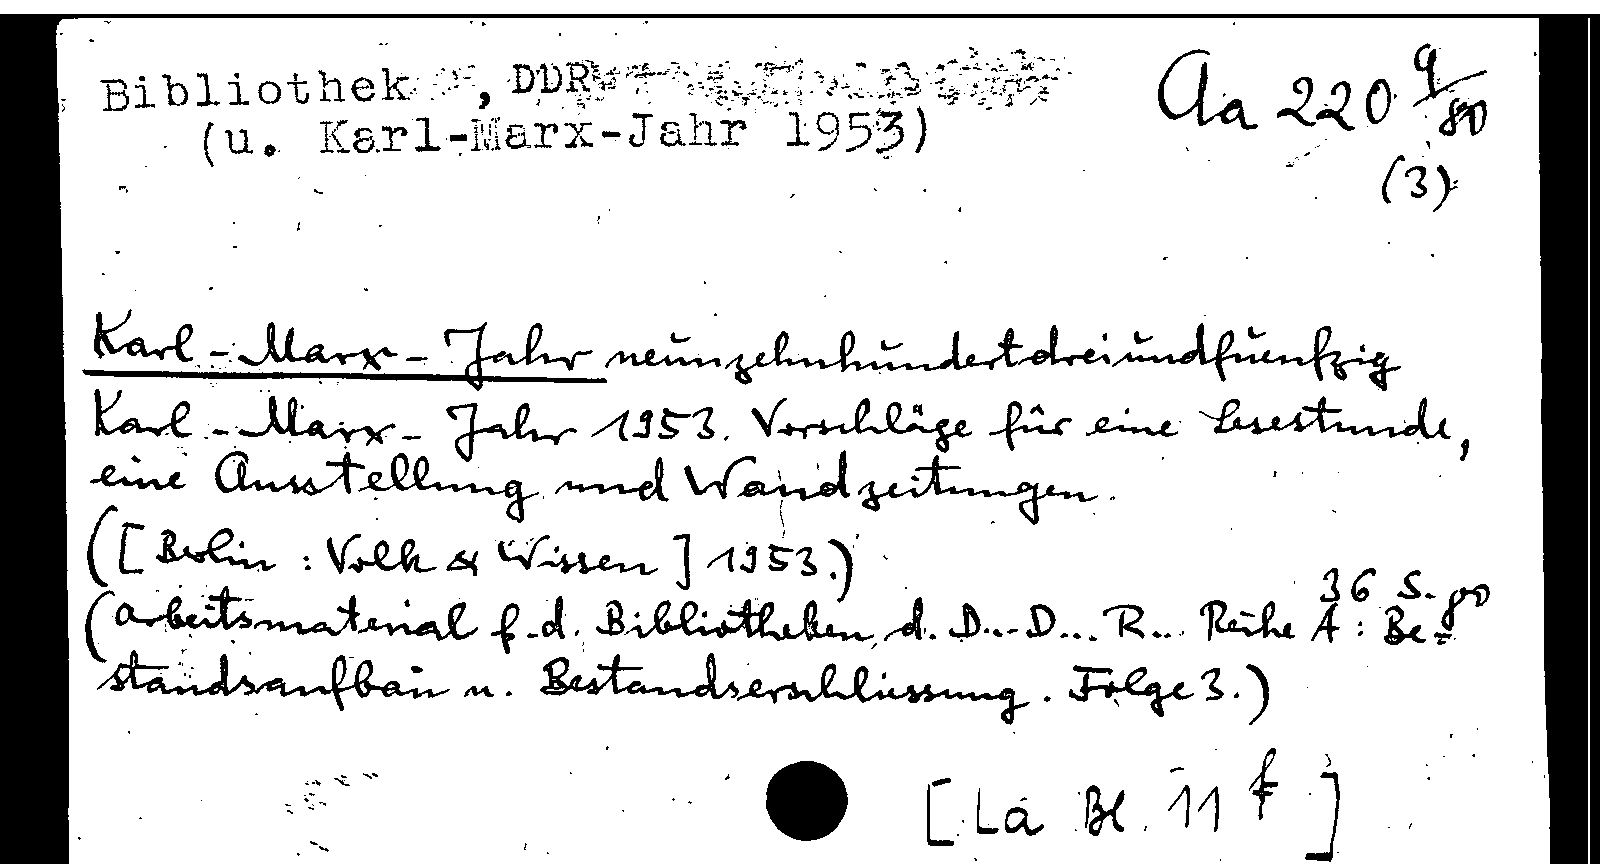 Bibliothek , DDR
(u. Karl-Marx-Jahr 1953)
Aa 220 9/80
(3)
Karl-Marx-Jahr neunzehnhundertdreiundfuenfzig
Karl-Marx-Jahr 1953. Vorschläge für eine Lesestunde,
eine Ausstellung und Wandzeitungen.
([Berlin : Volk & Wissen] 1953.)
36 S. 80
(Arbeitsmaterial f. d. Bibliotheken d. D... D... R... Reihe A : Be-
standsaufbau u. Bestandserschliessung. Folge 3.)
[La Bl. 11 f]